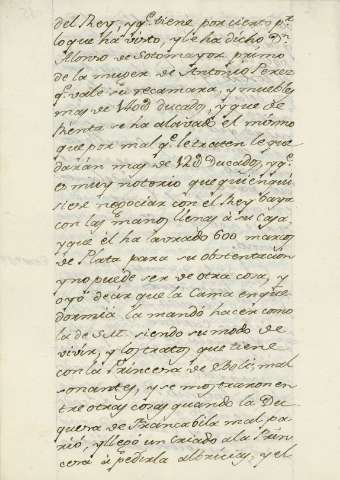 del Rey, y q.e tiene por cierto p.r
lo que ha visto, y le ha dicho D.n
Alonso de Sotomayor primo
de la muger de Antonio Perez
q.e vale su recamara, y muebles
mas de 140@ ducados, y que de
Renta se ha alavado el mismo
que por mal q.e le traten le que
darán mas de 12@ Ducados, y q.e
es muy notorio que quien qui
siere negociar con el Rey vaya
con las manos llenas à su casa,
y que él ha labrado 600 marcos
de Plata para su obstentacion
y no puede ser de otra cosa, y
oyó decir que la Cama en que
dormia la mandó hacer como
la de S.M. siendo su modo de
vivir, y los tratos que tiene
con la Princesa de Eboli mal
sonantes, y se mostraron en
tre otras cosas quando la Du
quesa de Francabila mal pa
rió, y llegó un criado a la Prin
cesa à pedirla albricias, y el